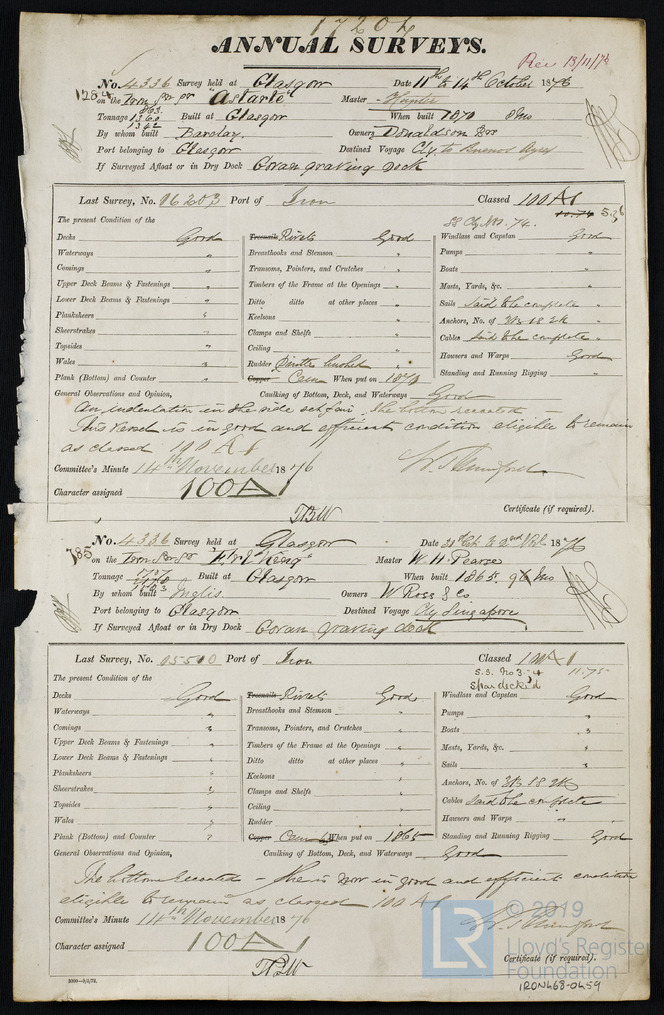 17204
ANNUAL SURVEYS.
Rec 13/11/76
No. 4336 Survey held at Glasgow Date 11th to 14th October 1876
1284 on the Iron Scr Sr "Astarte" Master Hunter
863
Tonnage 1360 Built at Glasgow When built 1870 8 mo
1342
By whom built Barclay. Owners Donaldson Bros
Port belonging to Glasgow Destined Voyage Cly to Buenos Ayres
If Surveyed Afloat or in Dry Dock Govan graving dock
Last Survey, No. 16203 Port of Iron Classed 100A1
SS Cly No1. 74. 5,76
The present Condition of the
Decks Good Treenails Rivets Good Windlass and Capstan Good
Waterways " Breasthooks and Stemson " Pumps "
Comings " Transoms, Pointers, and Crutches " Boats "
Upper Deck Beams & Fastenings " Timbers of the Frame at the Openings " Masts, Yards, &c. "
Lower Deck Beams & Fastenings " Ditto ditto at other places " Sails Said to be complete "
Planksheers " Keelsons " Anchors, No. of 3B 1S 2K
Sheerstrakes " Clamps and Shelfs " Cables Said to be complete "
Topsides " Ceiling " Hawsers and Warps Good
Wales " Rudder Pintles bushed Standing and Running Rigging "
Plank (Bottom) and Counter " Copper Cem When put on 1870
General Observations and Opinion, Caulking of Bottom, Deck, and Waterways Good
An indentation in the side set fair. The bottom recoated
This vessel is in good and efficient condition eligible to remain
as classed 100 A1
Committee's Minute 14th November 1876
Character assigned 100A1
TBW Certificate (if required).
No. 4336 Survey held at Glasgow Date 31st Oct to 2nd Nov 1876
785 on the Iron Scr Sr "Erl King" Master W. H. Pearse
Tonnage Built at Glasgow When built 1865. 9 mo
By whom built Inglis. Owners W Ross & Co.
Port belonging to Glasgow Destined Voyage Cly Singapore
If Surveyed Afloat or in Dry Dock Govan graving dock
Last Survey, No. 15510 Port of Iron Classed 100A1
S.S. No 3.74 11.75
The present Condition of the Spar decked
Decks Good Treenails Rivets Good Windlass and Capstan Good
Waterways " Breasthooks and Stemson " Pumps "
Comings " Transoms, Pointers, and Crutches " Boats "
Upper Deck Beams & Fastenings " Timbers of the Frame at the Openings " Masts, Yards, &c. "
Lower Deck Beams & Fastenings " Ditto ditto at other places " Sails "
Planksheers " Keelsons " Anchors, No. of 3B 1S 2K
Sheerstrakes " Clamps and Shelfs " Cables Said to be complete
Topsides " Ceiling " Hawsers and Warps "
Wales " Rudder " Standing and Running Rigging Good
Plank (Bottom) and Counter " Copper Cem When put on 1865
General Observations and Opinion, Caulking of Bottom, Deck, and Waterways Good
The bottom recoated - She is now in good and efficient condition
eligible to remain as classed 100 A1
Committee's Minute 14th November 1876
Character assigned 100A1
TBW Certificate (if required).
2000—9/5/72.
LR © 2019
Lloyd's Register
Foundation
IRON468-0459